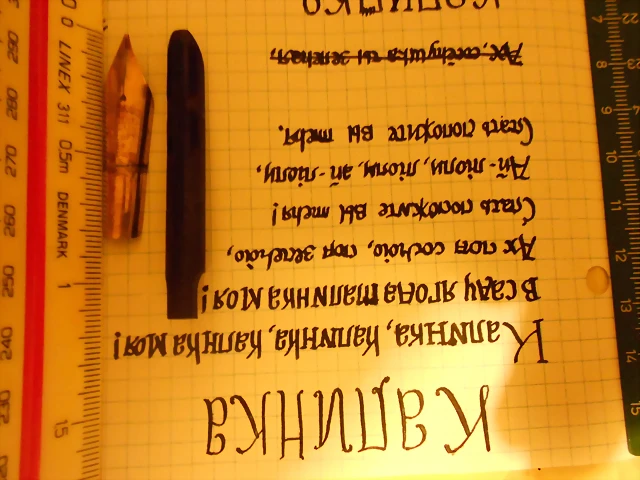 Калинка
Калинка, калинка, калинка моя!
В саду ягода малинка моя!
Ах под сосною, под зеленою,
Спать положите вы меня!
Ай-люли, люли, ай-люли,
Спать положите вы меня.
Ах, сосёнушка ты зеленая,
Калинка
LINEX 311 0,5m DENMARK
290
280
270
260
250
240
230
1
8
9
10
11
12
13
14
15